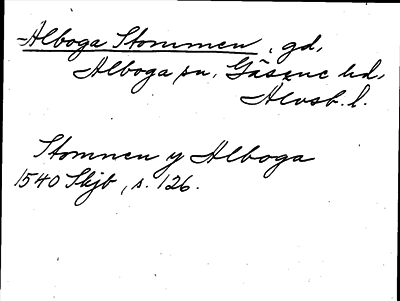 Alboga Stommen, gd,
Alboga sn, Gäsene hd,
Älvsb. l.
Stomnen y Alboga
1540 Skjb, s. 126.